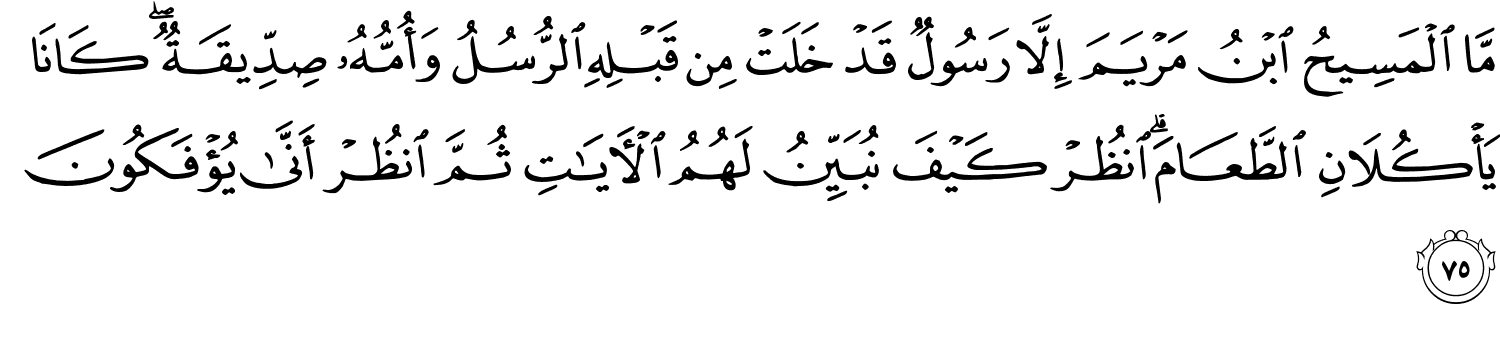 مَّا ٱلْمَسِيحُ ٱبْنُ مَرْيَمَ إِلَّا رَسُولٌ قَدْ خَلَتْ مِن قَبْلِهِ ٱلرُّسُلُ وَأُمُّهُۥ صِدِّيقَةٌ ۖ كَانَا
يَأْكُلَانِ ٱلطَّعَامَ ۗ ٱنظُرْ كَيْفَ نُبَيِّنُ لَهُمُ ٱلْـَٔايَـٰتِ ثُمَّ ٱنظُرْ أَنَّىٰ يُؤْفَكُونَ
٧٥